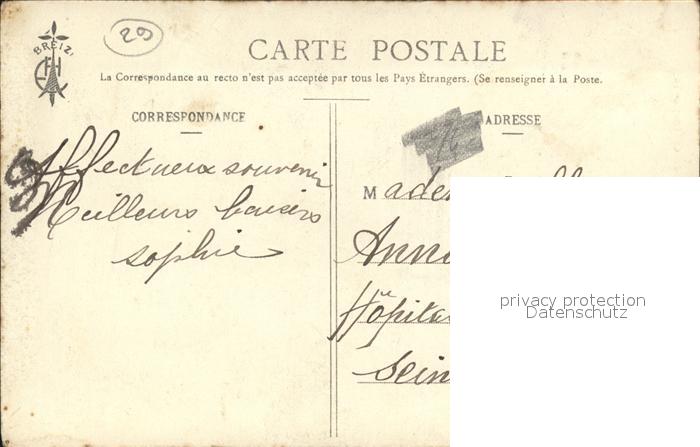 BREIZ
29
CARTE POSTALE
La Correspondance au recto n'est pas acceptée par tous les Pays Étrangers. (Se renseigner à la Poste.
CORRESPONDANCE
ADRESSE
Affectueux souvenir
Meilleurs baisers
sophie
M
privacy protection
Datenschutz